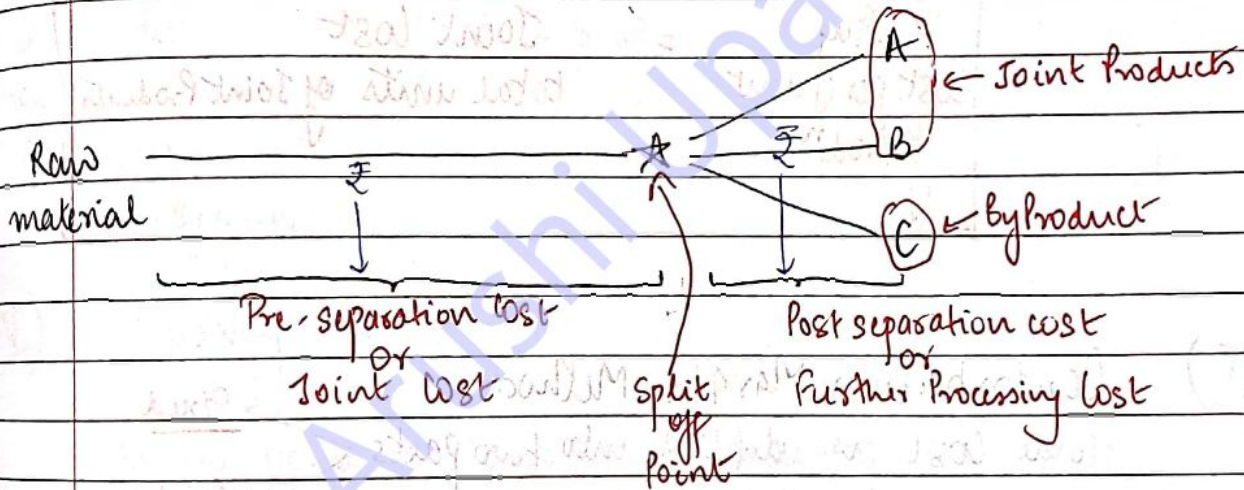 A
← Joint Products
B
Raw
material
₹
₹
C
← ByProduct
Pre-separation Cost
or
Joint Cost
Split
off
Point
Post separation cost
or
Further Processing Cost
Arushi Upa